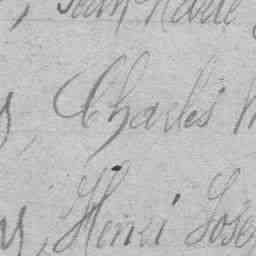 , Jean Marie
, Charles
, Henri Jose